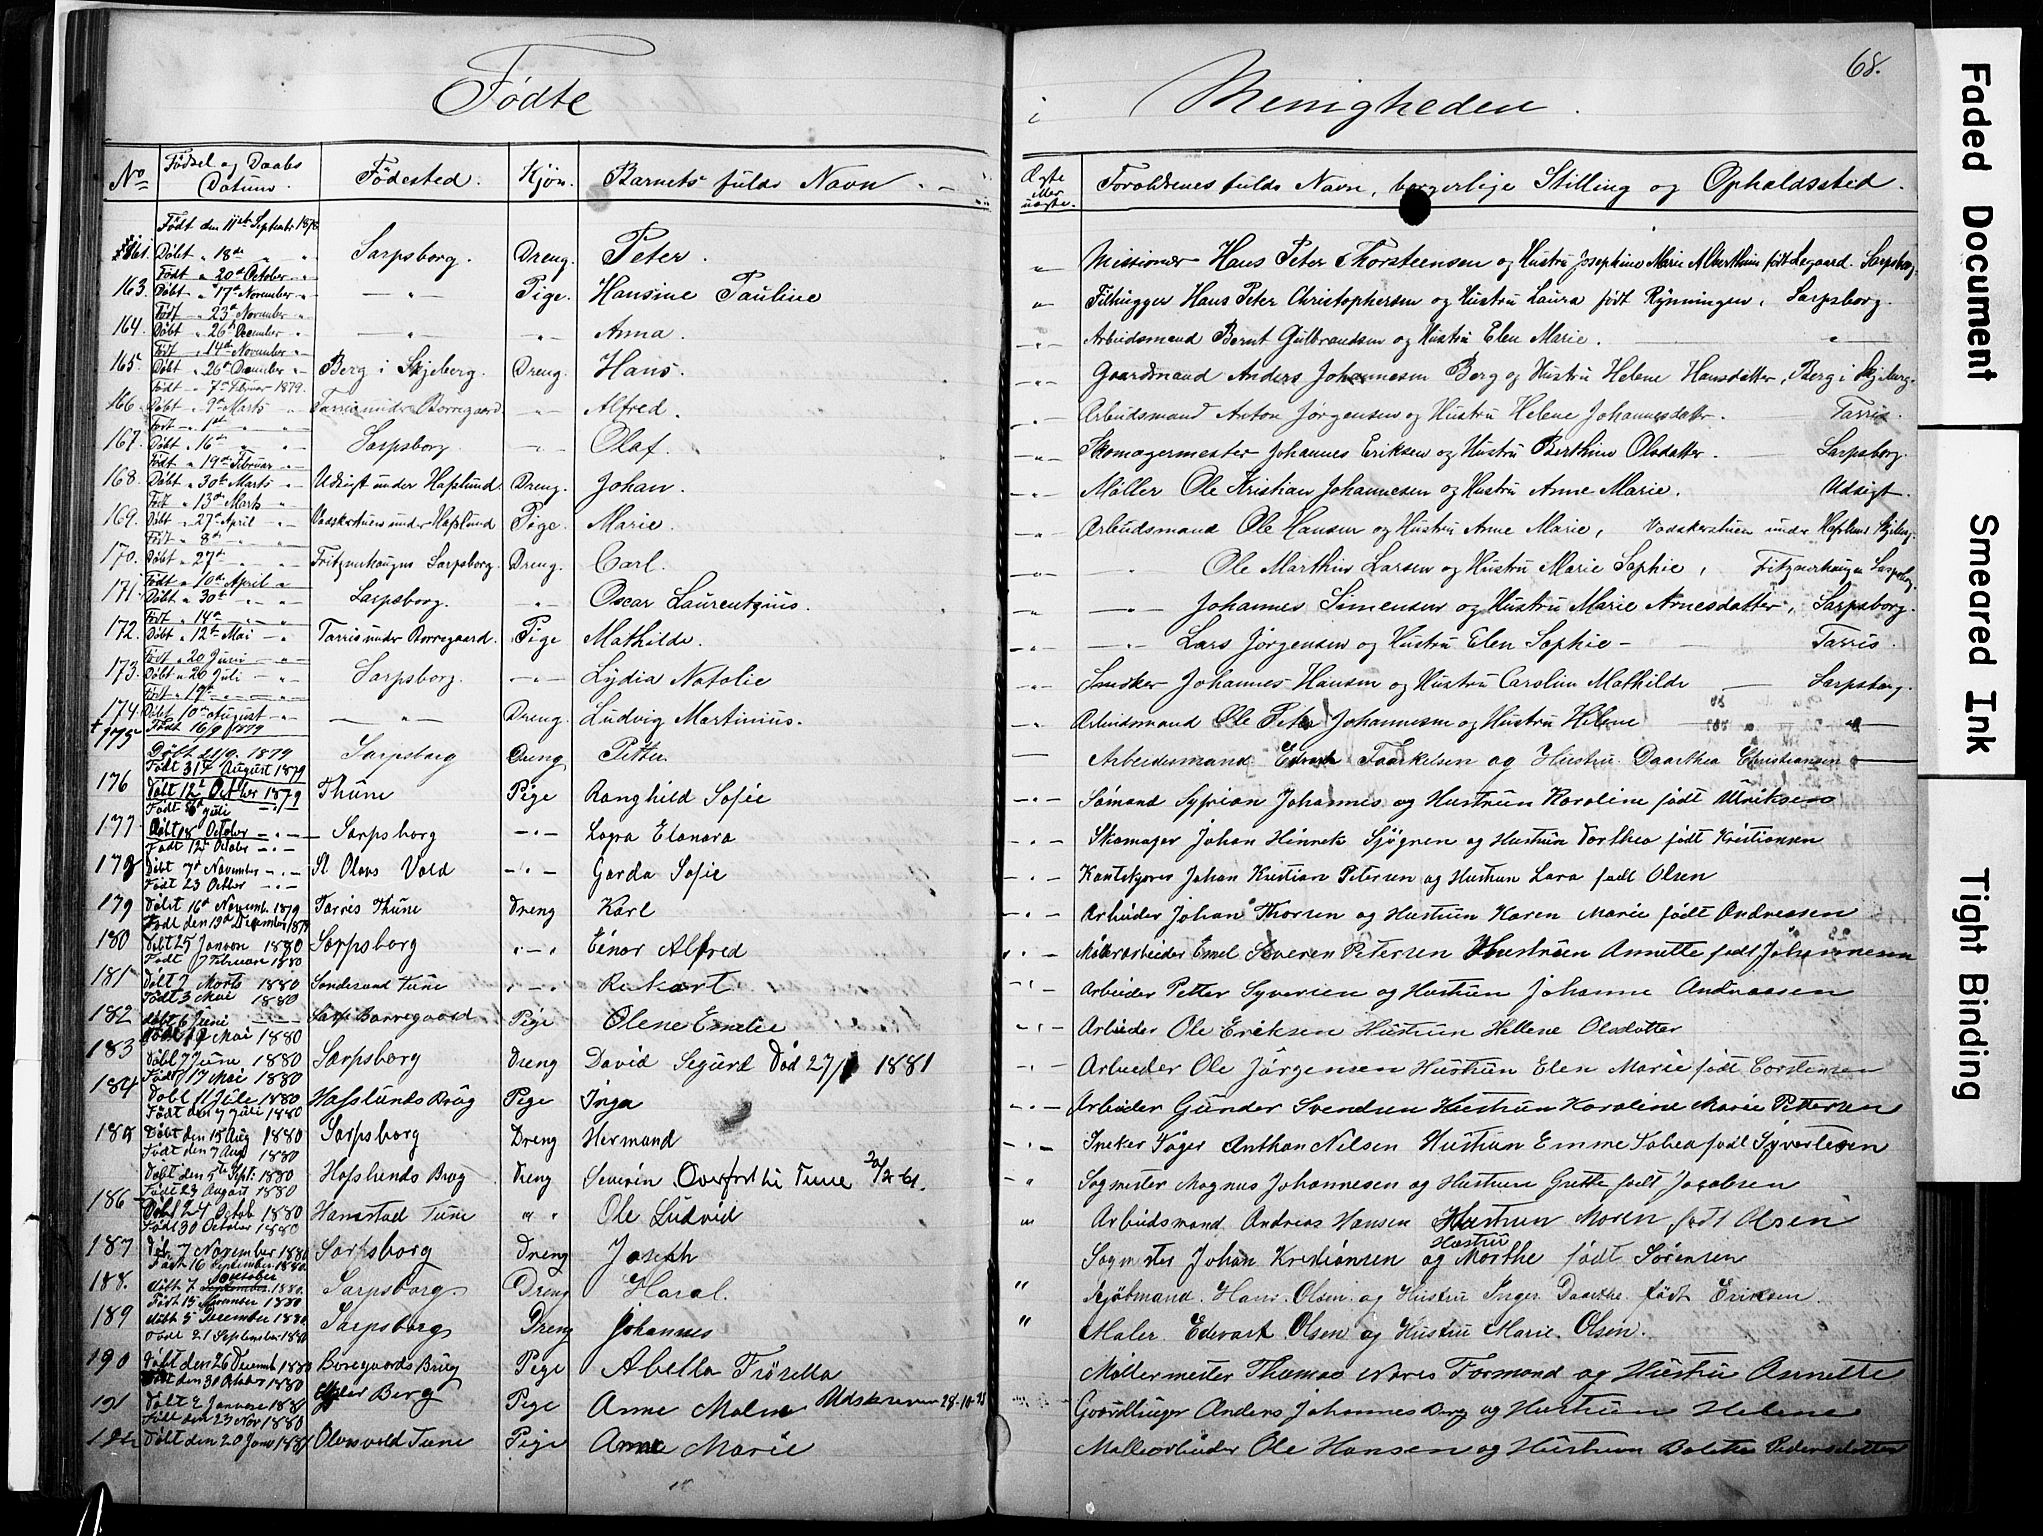 68.
Fødte
i Menigheden.
No
Fødsel og Daabs Datum.
Fødested.
Kjøn.
Barnets fulde Navn.
Ægte eller uægte.
Forældrenes fulde Navn, borgerlige Stilling og Opholdssted.
Født den 11te September 1878
Døbt " 18de " " Sarpsborg. Dreng. Peter. " Missionær Hans Peter Thorsteensen og Hustru Josephine Marie Albertine født Aegaard. Sarpsborg.
Født " 20de October - " -
163. Døbt " 17de November - " - - " - Pige. Hansine Pauline " Filhugger Hans Peter Christophersen og Hustru Laura født Rynningen, Sarpsborg.
Født - " 23de November - " -
164. Døbt " 26de December " - - " - - " - Anna. - " - Arbeidsmand Bernt Gulbrandsen og Hustru Elen Marie. - " -
Født " 14de November "
165. Døbt " 26de December " - Berg i Skjeberg. Dreng. Hans. - " - Gaardmand Anders Johannesen Berg og Hustru Helene Hansdatter, Berg i Skjeberg.
Født - " 7de Februar 1879.
166. Døbt " 9de Marts " Tarris under Borregaard - " - Alfred. - " - Arbeidsmand Anton Jørgensen og Hustru Helene Johannesdatter. Tarris.
Født - " 1ste " - " -
167. Døbt " 16de " - " - Sarpsborg. - " - Olaf. - " - Skomagermester Johannes Eriksen og Hustru Berthine Olsdatter. - Sarpsborg.
Født " 19de Februar - " -
168. Døbt " 30te Marts - " - Udsigt under Hafslund. Dreng. Johan. - " - Møller Ole Kristian Johannesen og Hustru Anne Marie. Udsigt.
Født " 13de Marts "
169. Døbt " 27de April " under Hafslund Pige. Marie. - " - Arbeidsmand Ole Hansen og Hustru Anne Marie, under Hafslund Skjeberg.
Født " 8de - " -
170. Døbt " 27de " " Sarpsborg. Dreng. Carl. - " - - " - Ole Marthin Larsen og Hustru Marie Sophie, Sarpsborg.
Født " 10de April "
171. Døbt " 30te - " - Sarpsborg. - " - Oscar Laurentzius. " - " - Johannes Simensen og Hustru Marie Arnesdatter, Sarpsborg.
Født " 14de - " -
172. Døbt " 12te Mai - " Tarris under Borregaard. Pige Mathilde. - " - - " - Lars Jørgensen og Hustru Elen Sophie - Tarris.
Født " 20 Juni - " -
173. Døbt " 20 Juli - " - Sarpsborg. - " - Lydia Natalie - " - Snedker Johannes Hansen og Hustru Caroline Mathilde - Sarpsborg.
Født " 19de - " -
174. Døbt 10de August - " - - " - Dreng. Ludvig Martinius. - " - Arbeidsmand Ole Peter Johannesen og Hustru Helene - " -
Født 16/9 1879
175 Døbt 21/9. 1879 Sarpsborg Dreng Petter - Arbeidesmand Edvard Taarkelsen og Hustru Daarthea Christiansen
Født 31te August 1879
176 Døbt 12te Octber 1879 Thune Pige Ranghild Sofie - " - Sømand Syprian Johannis og Hustrun Karoline født Ulriksen
Født 6te juli - " -
177 Døbt 8de October - " - Sarpsborg - " - Lovra Elanora - " - Skomager Johan Hinnrek Sjøgren og Hustrun Dorthea født Kristiansen
Født 12te October - " -
178 Døbt 7de November - " - St Olavs Vold - " - Garda Sofie - " - Johan Kristian Petersen og Hustrun Lara født Olsen
Født 23 Octber - " -
179 Døbt 16de Novemb. 1879 Tarris Thune Dreng Karl - " - Arbeider Johan Thorsen og Hustrun Karen Marie født Andreassen
Født den 19de December 1879
180 Døbt 25 Janvar 1880 Sarpsborg - " - Einar Alfred - " - Møllerarbeider Emel Severen Petersen Hustruen Annette født Johannesen
Født 7 Februar 1880
181 Døbt 7 Marts 1880 Sandesund Tune - " - Rekart - " - Arbeider Petter Syversen og Hustrun Johanne Andreassen
Født 3 Mai 1880
182 døbt 6 Juni Borregaard Pige Olene Emelie - " - Arbeider Ole Eriksen Hustrun Hellene Olsdatter
Født Mai 1880
183 Døbt 7 June 1880 Sarpsborg Dreng David Segurd Død 27/ 1881 - " - Arbeeder Ole Jørgensen Hustrun Elen Marie født Torstensen
Født 17 Mai 1880
184 Døbt 11 Jule 1880 Hafslunds Brug Pige Inga - " - Arbeider Gunder Svendsen Hustrun Karoline Marie Pettersen
Født den 7 juli 1880
185 Døbt den 15 Aug 1880 Sarpsborg Dreng Hermand - " - Sneker Anthon Nilsen Hustrun Emme født Syvertsen
Født den 7 Aug 1880
Døbt den 5te Sept: 1880 Hafslunds Brug Dreng Severin Overført til Tune 20/2-61. - " Sagmester Magnus Johannesen og Hustrun Grette født Jacobsen
Født 23 August 1880
186 Døbt 24 Octob 1880 Hannestad Tune " " Ole Ludvid " Arbeidsmand Andreas Hansen Hustrun Maren født Olsen
Født 30 October 1880
187 Døb. 7 November 1880 Sarpsborg Dreng Joseph Sagmester Johan Kristiansen og Hustru Marthe født Sørensen
Født 16 September 1880.
188. døbt 7 October 1880. Sarpsborg Dreng Haral. " Kjøbmand. Hans. Olsen. og Hustru Inger Daarthe født Eriksen.
Født 15 November 1880
189 døbt 5 December 1880 Sarpsborg Dreng Johannes " Maler. Edevart Olsen og Hustru Marie. Olsen.
Født 21 September 1880
190 Døbt den 26 Decemb 1880 Boregaards Brug Pige Abella Frøsella Møllermester Thomas Formand og Hustru Annette
Født den 30 October 1880
191 Døbt 2 Janvare 1881 Berg Pige Anne Malm Udskreven 28-10- Anders Johannes Berg og Hustrun Helene
Født den 23 Nov 1880
192 Døbt den 20 Janv 1881 Olavsvold Tune Pige Anne Marie Møllearbeider Ole Hansen og Hustrun Pedersdatter
Faded Document
Smeared Ink
Tight Binding